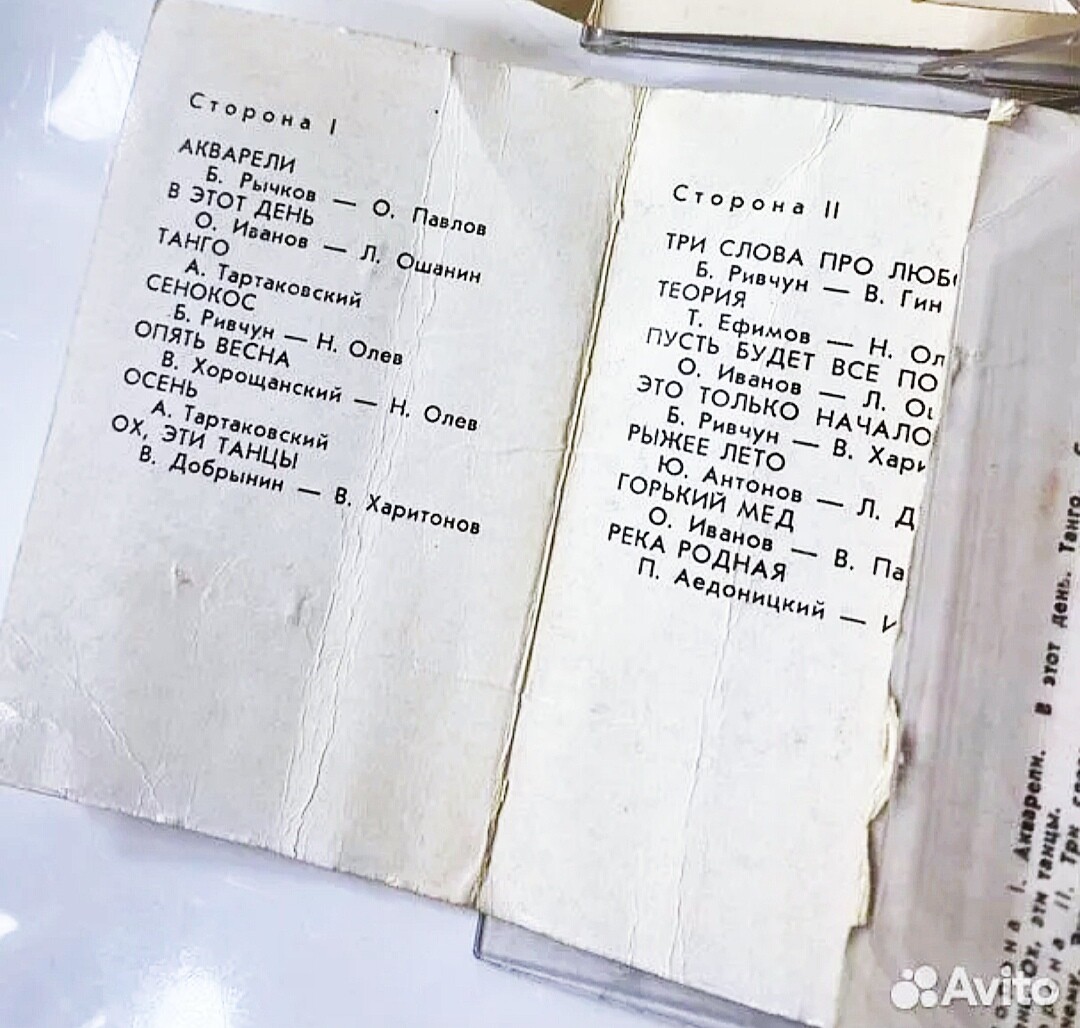 Сторона I
АКВАРЕЛИ
Б. Рычков — О. Павлов
В ЭТОТ ДЕНЬ
О. Иванов — Л. Ошанин
ТАНГО
А. Тартаковский
СЕНОКОС
Б. Ривчун — Н. Олев
ОПЯТЬ ВЕСНА
В. Хорощанский — Н. Олев
ОСЕНЬ
А. Тартаковский
ОХ, ЭТИ ТАНЦЫ
В. Добрынин — В. Харитонов
Сторона II
ТРИ СЛОВА ПРО ЛЮБ
Б. Ривчун — В. Гин
ТЕОРИЯ
Т. Ефимов — Н. Ол
ПУСТЬ БУДЕТ ВСЕ ПО
О. Иванов — Л. О
ЭТО ТОЛЬКО НАЧАЛО
Б. Ривчун — В. Хари
РЫЖЕЕ ЛЕТО
Ю. Антонов — Л. Д
ГОРЬКИЙ МЕД
О. Иванов — В. Па
РЕКА РОДНАЯ
П. Аедоницкий —
I. Акварели. В этот день. Танго
Ох, эти танцы.
II. Три
Avito